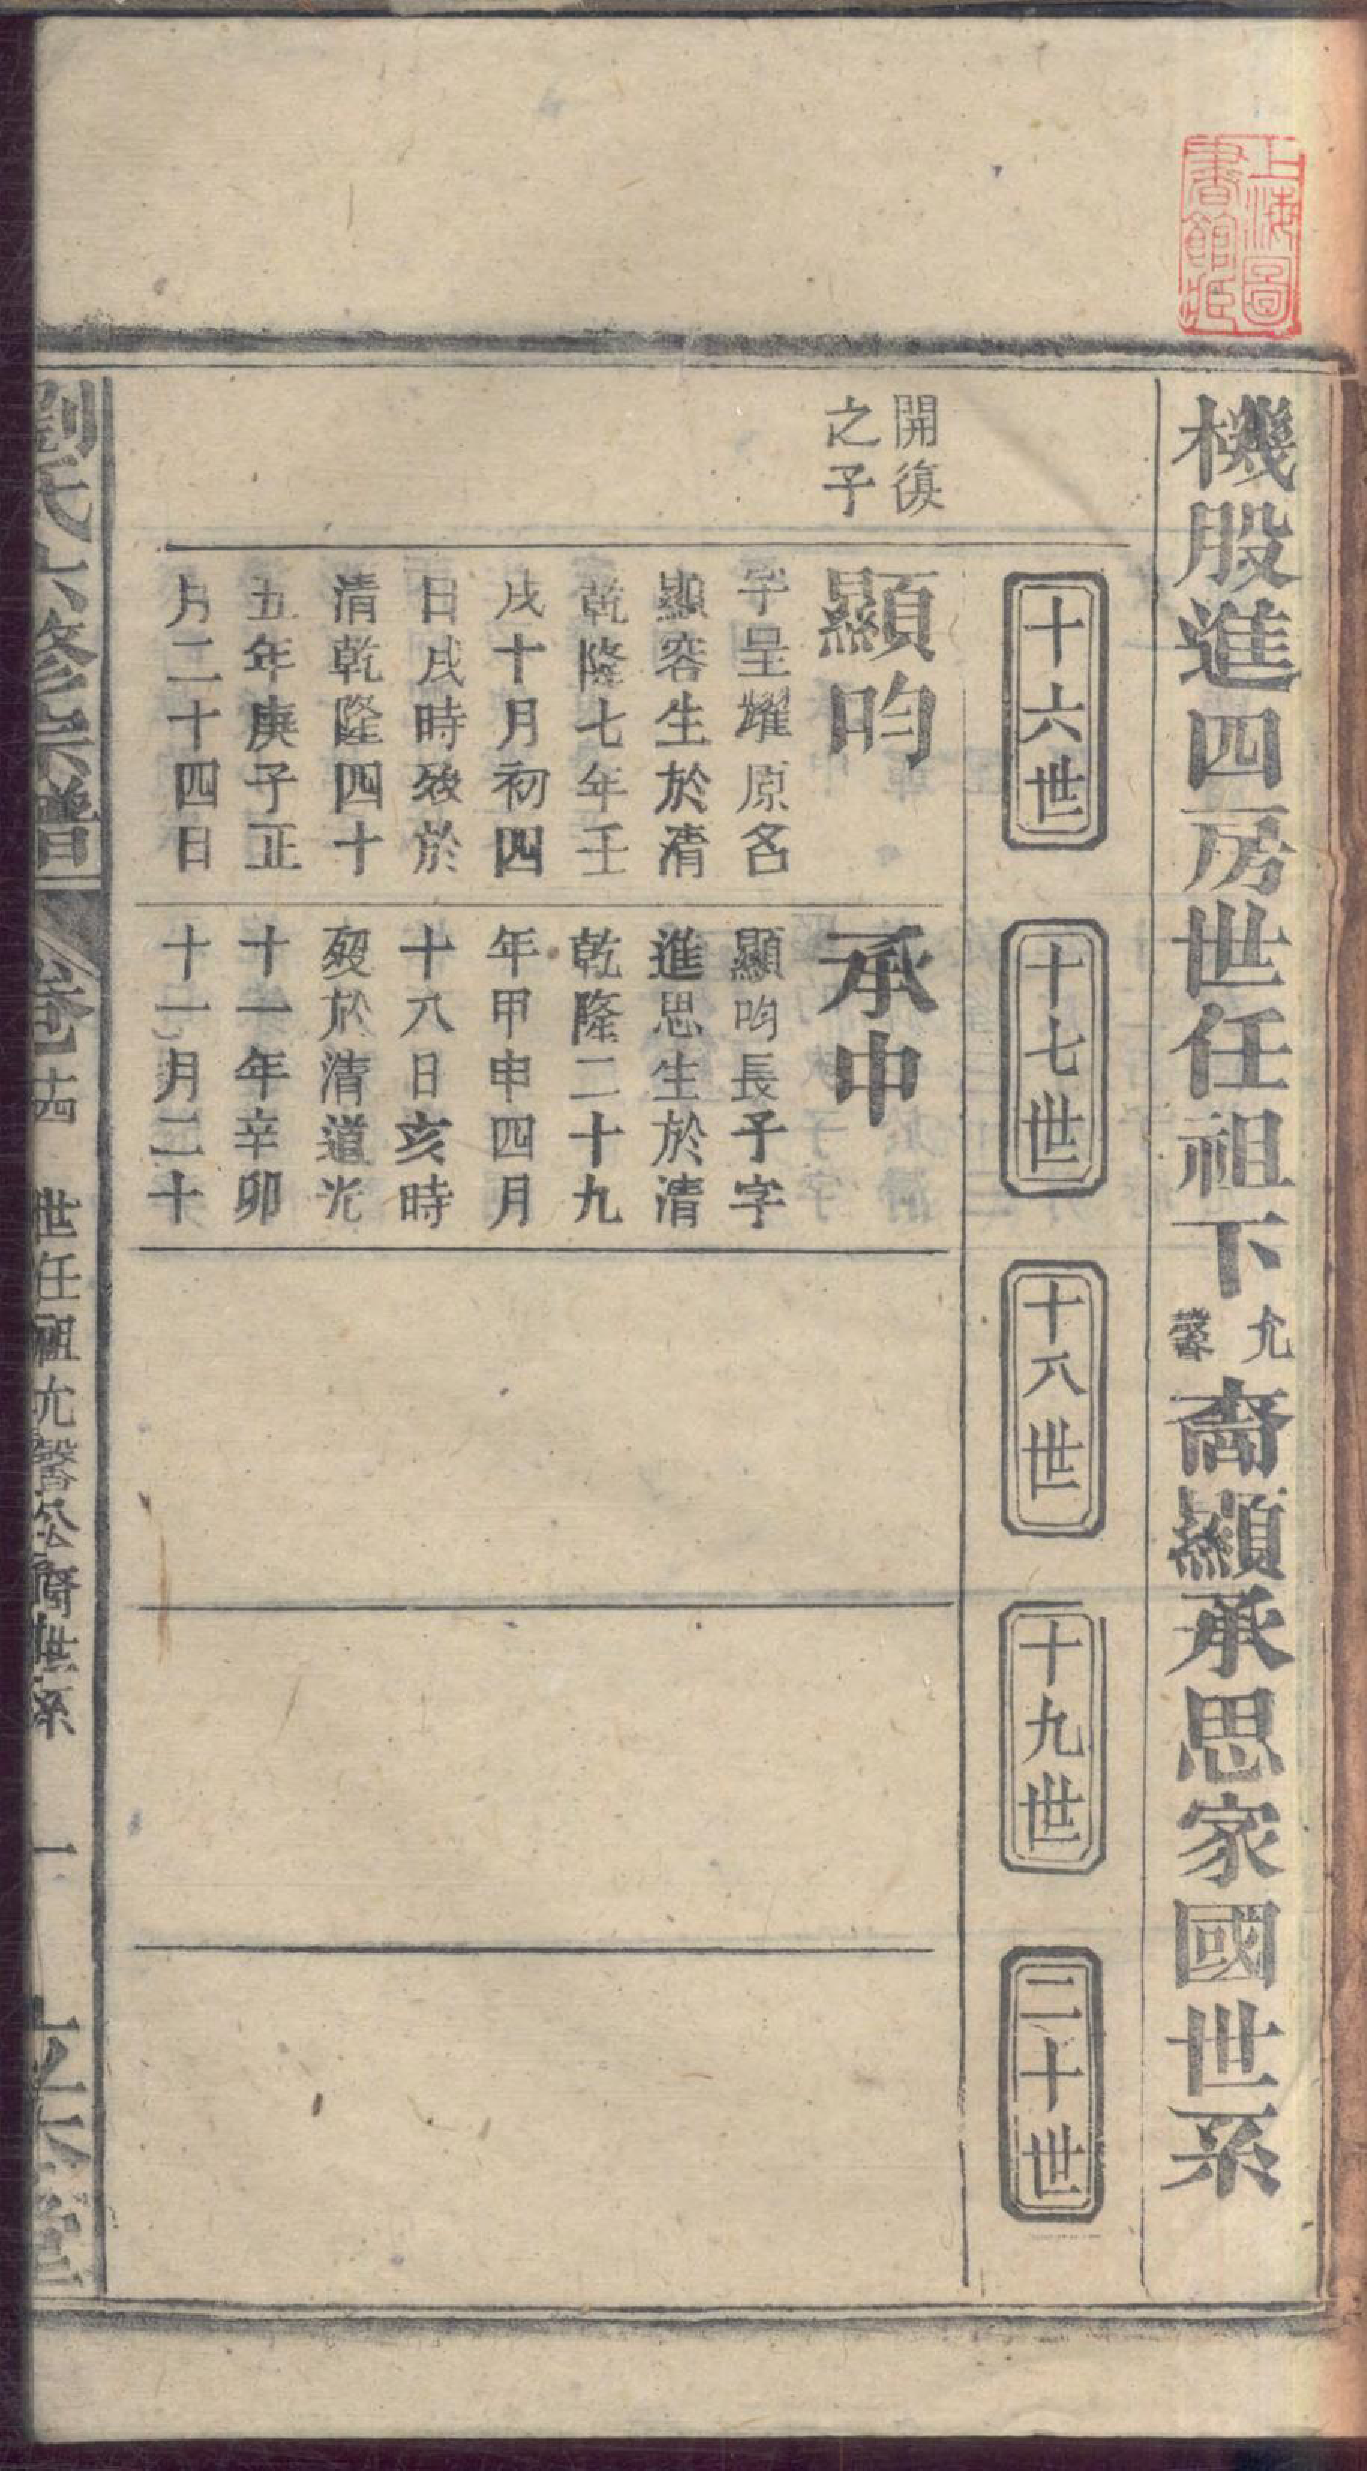 上海圖
書館藏
機股進四房世任祖下允馨裔顯承思家國世系
十六世
十七世
十八世
十九世
二十世
開復
之子
顯昀
字呈耀原名
顯容生於清
乾隆七年壬
戌十月初四
日戌時歿於
清乾隆四十
五年庚子正
月二十四日
承申
顯昀長子字
進思生於清
乾隆二十九
年甲申四月
十八日亥時
歿於清道光
十一年辛卯
十一月二十
劉氏六修宗譜
卷十四
世任祖允馨公裔世系
一